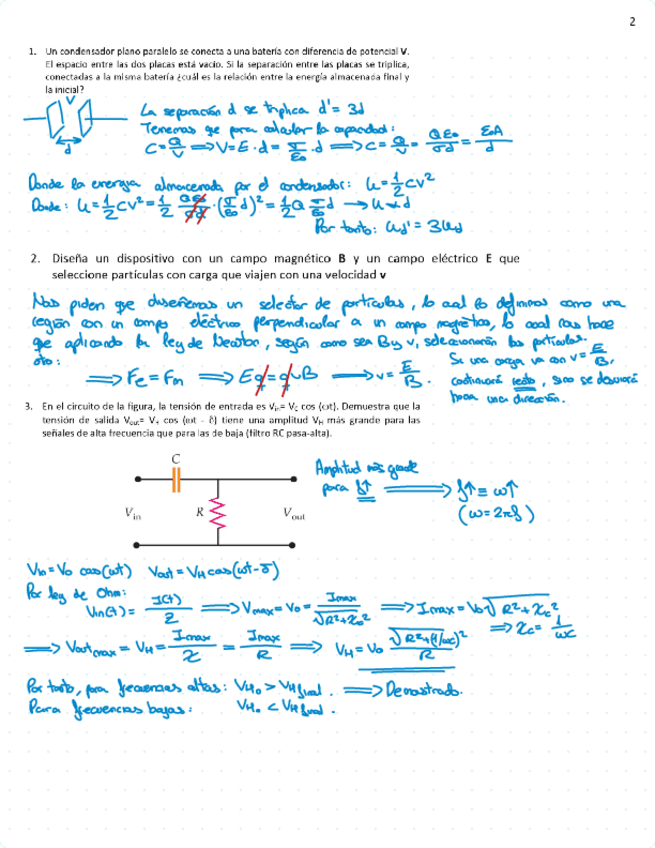 2
1. Un condensador plano paralelo se conecta a una batería con diferencia de potencial V.
El espacio entre las dos placas está vacío. Si la separación entre las placas se triplica,
conectadas a la misma batería ¿cuál es la relación entre la energía almacenada final y
la inicial?
V
d
La separación d se triplica d' = 3d
Tenemos que para calcular la capacidad:
C = Q/V ⟹ V = E · d = σ/ε₀ · d ⟹ C = Q/V = Qε₀/σd = ε₀A/d
Donde la energía almacenada por el condensador: U = 1/2 CV²
Donde: U = 1/2 CV² = 1/2 Qε₀/σd · (σ/ε₀ d)² = 1/2 Q σ/ε₀ d → U ∝ d
Por tanto: Ud' = 3Ud
2. Diseña un dispositivo con un campo magnético B y un campo eléctrico E que
seleccione partículas con carga que viajen con una velocidad v
Nos piden que diseñemos un selector de partículas, lo cual lo definimos como una
región con un campo eléctrico perpendicular a un campo magnético, lo cual nos hace
que aplicando la ley de Newton, según como sea B y v, seleccionarán las partículas.
Esto:
⟹ Fe = Fm ⟹ Eq = qvB ⟹ v = E/B.
Si una carga va con v = E/B,
continuará recto, sino se desviará
hacia una dirección.
3. En el circuito de la figura, la tensión de entrada es Vin= V0 cos (ωt). Demuestra que la
tensión de salida Vout= VH cos (ωt - δ) tiene una amplitud VH más grande para las
señales de alta frecuencia que para las de baja (filtro RC pasa-alta).
C
Vin
R
Vout
Amplitud más grande
para f↑ ⟹ f↑ ≡ ω↑
(ω = 2πf)
Vin = V0 cos(ωt) Vout = VH cos(ωt - δ)
Por ley de Ohm:
Vin(t) = I(t)/Z ⟹ Vmax = V0 = Imax/√R² + Xc² ⟹ Imax = V0 √R² + Xc²
⟹ Xc = 1/ωC
⟹ Vout max = VH = Imax/Z = Imax/R ⟹ VH = V0 √R² + (1/ωC)²/R
Por tanto, para frecuencias altas: VH0 > VH final. ⟹ Demostrado.
Para frecuencias bajas: VH0 < VH final.